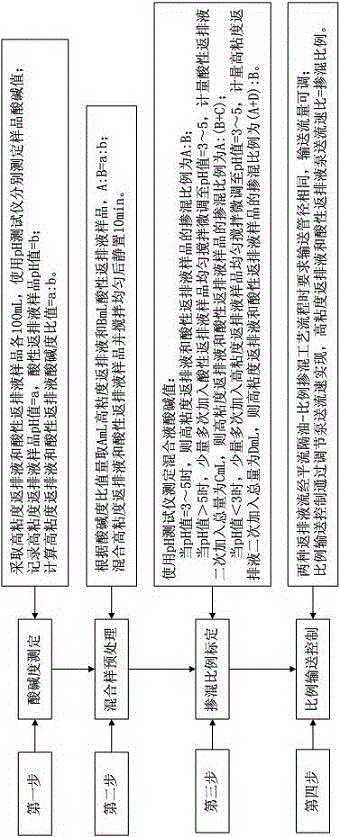 第一步
酸碱度测定
采取高粘度返排液和酸性返排液样品各100mL，使用pH测试仪分别测定样品酸碱值；
记录高粘度返排液样品pH值=a，酸性返排液样品pH值=b；
计算高粘度返排液和酸性返排液酸碱度比值=a:b。
第二步
混合样预处理
根据酸碱度比值量取AmL高粘度返排液和BmL酸性返排液样品，A:B=a:b；
混合高粘度返排液和酸性返排液样品并搅拌均匀后静置10min。
第三步
掺混比例标定
使用pH测试仪测定混合液酸碱值：
当pH值=3～5时，则高粘度返排液和酸性返排液样品的掺混比例为A:B；
当pH值＞5时，少量多次加入酸性返排液样品均匀搅拌微调至pH值=3～5，计量酸性返排液
二次加入总量为CmL，则高粘度返排液和酸性返排液样品的掺混比例为A:(B+C)；
当pH值＜3时，少量多次加入高粘度返排液样品均匀搅拌微调至pH值=3～5，计量高粘度返
排液二次加入总量为DmL，则高粘度返排液和酸性返排液样品的掺混比例为(A+D):B。
第四步
比例输送控制
两种返排液流经平流隔油-比例掺混工艺流程时要求输送管径相同，输送流量可调；
比例输送控制通过调节泵送流速实现，高粘度返排液和酸性返排液泵送流速比=掺混比例。